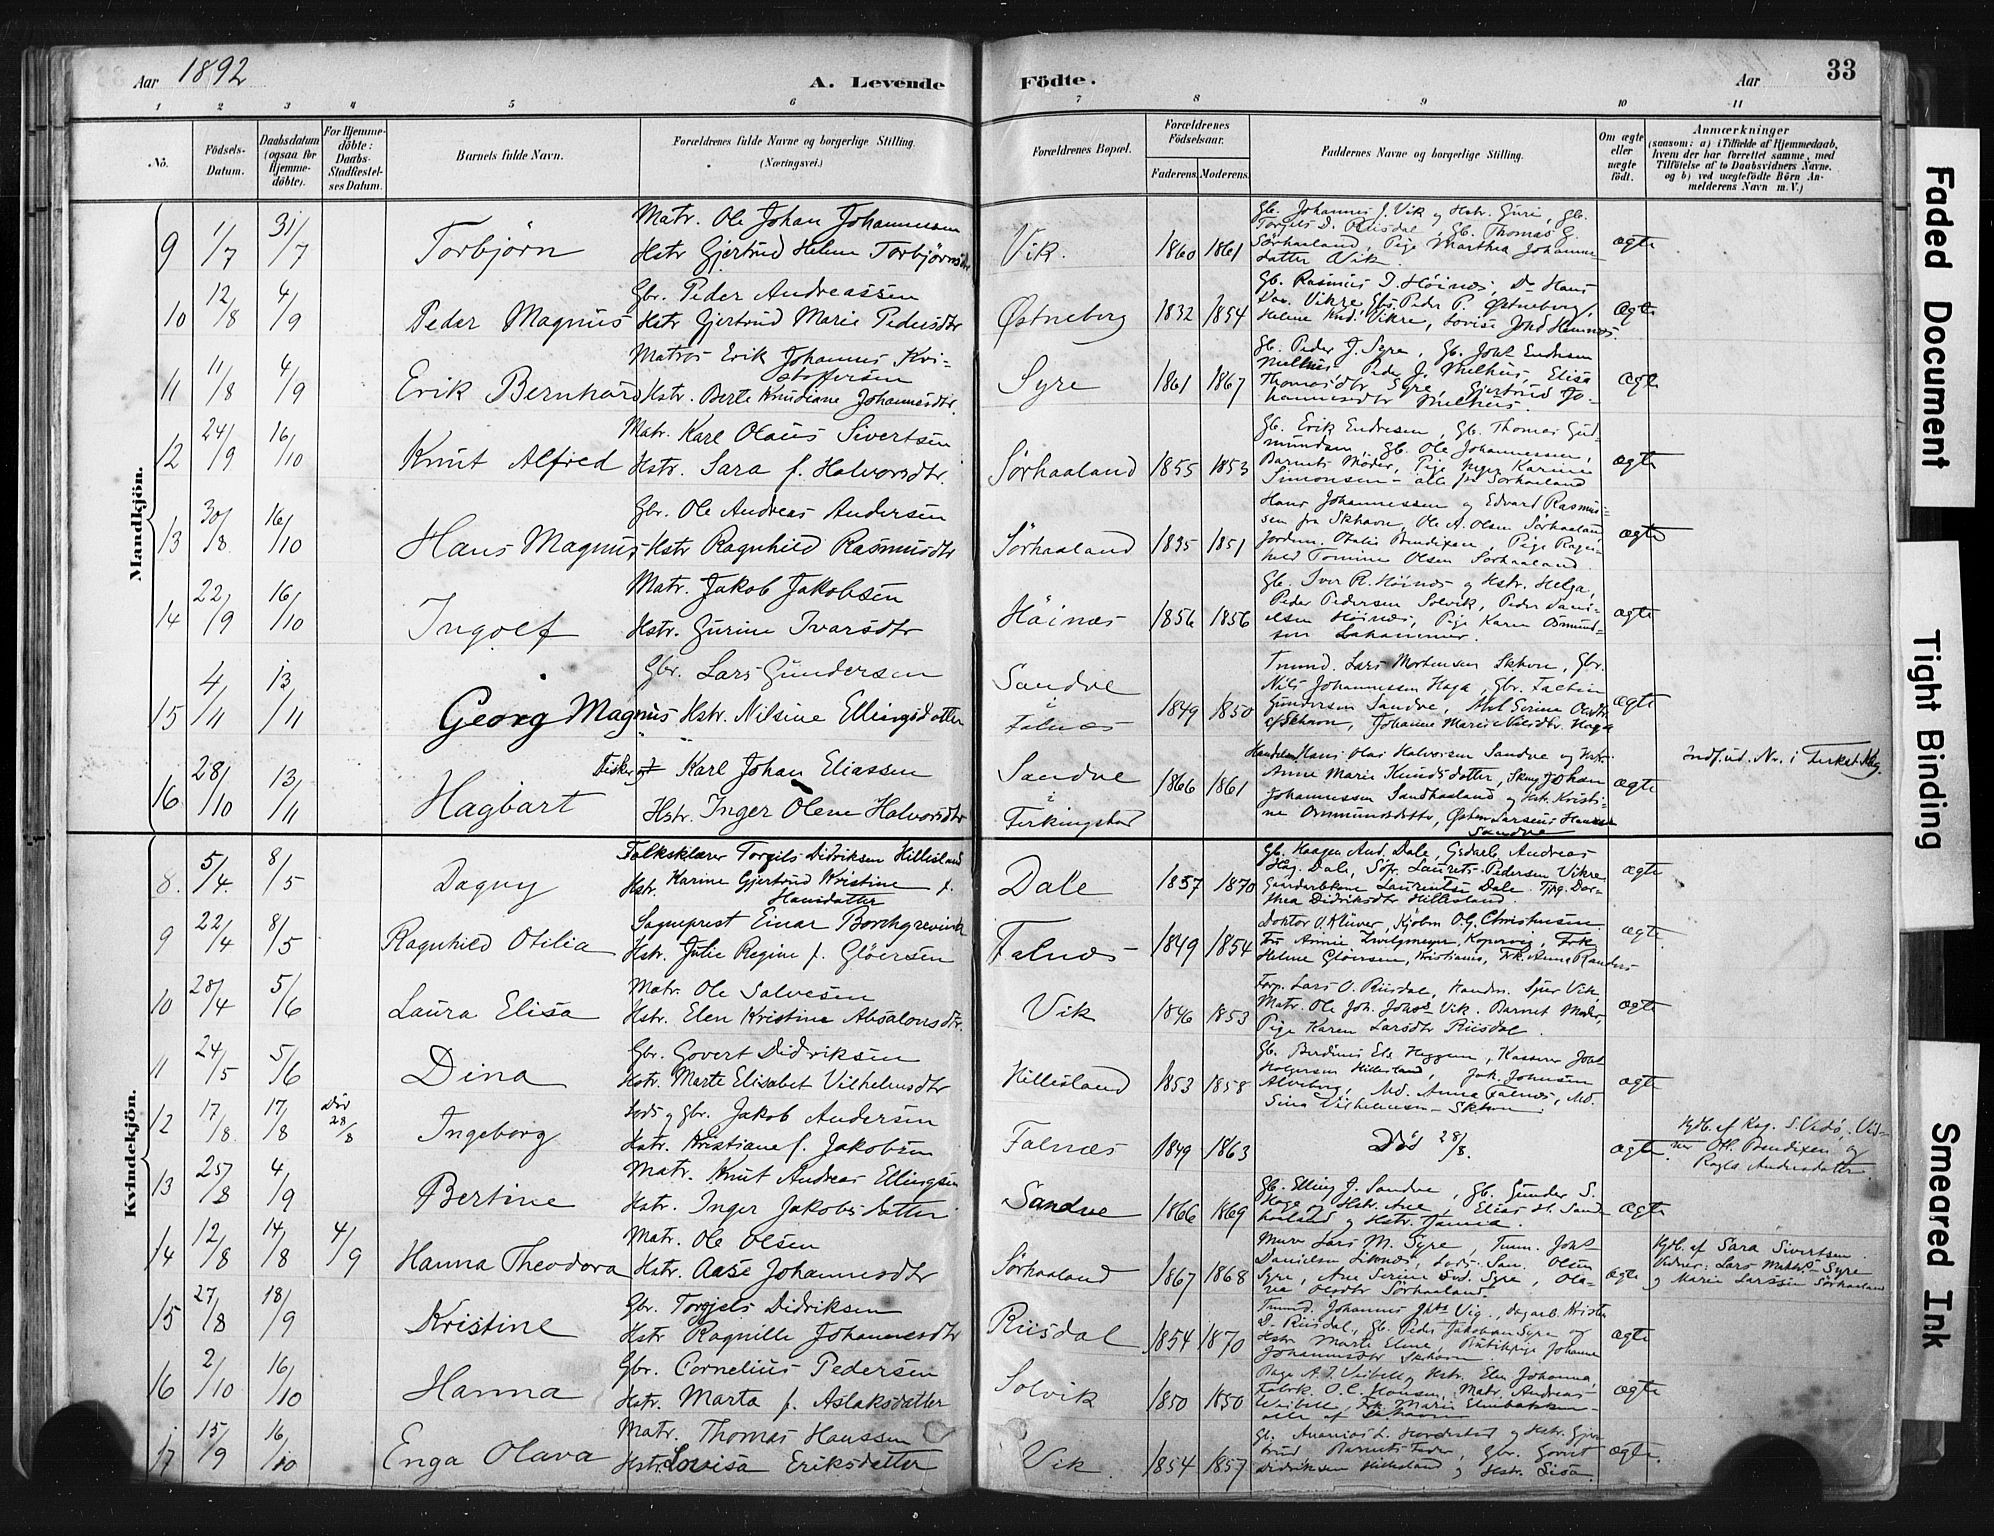 Aar 1892
A. Levende
Födte.
Aar
33
1 2 3 4 5 6 7 8 9 10 11
No.
Födsels-
Datum.
Daabsdatum
(ogsaa for
Hjemme-
döbte).
For Hjemme-
döbte:
Daabs-
Stadfæstel-
ses Datum.
Barnets fulde Navn.
Forældrenes fulde Navne og borgerlige Stilling.
(Næringsvei.)
Forældrenes Bopæl.
Forældrenes
Födselsaar.
Faderens. Moderens.
Faddernes Navne og borgerlige Stilling.
Om ægte
eller
uægte
født.
Anmærkninger
(saasom: a) i Tilfælde af Hjemmedaab,
hvem der har forrettet samme, med
Tilföielse af to Daabsvidners Navne.
og b) ved uægtefödte Börn An-
melderens Navn m. V.)
Mandkjön.
9 1/7 31/7 Torbjörn
Matr. Ole Johan Johannessen
Hstr Gjertrud Helene Torbjörnsdtr
Vik. 1860 1861
Gb. Johannes J. Vik og Hstr. Guri, Gb.
Torgils D. Riisdal, Gb. Thomas G.
Sörhaaland, Pige Marthea Johannes-
datter Vik.
ægte
10 12/8 4/9 Peder Magnus
Gbr. Peder Andreassen
Hstr Gjertrud Marie Pedersdtr
Østneberg 1832 1854
Gb. Rasmus J. Höinæs, Do Hans
Vikre Peder P. Østneberg,
Helene Knd. Vikre, Lovise
ægte
11 11/8 4/9 Erik Bernhard
Matros Erik Johannes Kri-
stoffersen
Hstr. Berte Knudiane Johannesdtr.
Syre 1861 1867
Gb. Peder J. Syre, Gb. Johs Endresen
Melhus Peder J. Melhus, Elisa
Thomasdtr Syre, Gjertrud Jo-
hannesdtr Melhus.
ægte
12 24/9 16/10 Knut Alfred
Matr. Karl Olaus Sivertsen
Hstr. Sara f. Halvorsdtr.
Sörhaaland 1855 1853
Gb. Erik Endresen, Gb. Thomas Gud-
mundsen, Gb. Ole Johannessen,
Barnets Moder, Pige Inger Karine
Simonsen - alle fra Sörhaaland
ægte
13 30/8 16/10 Hans Magnus
Gbr. Ole Andreas Andersen
Hstr Ragnhild Rasmusdtr
Sörhaaland 1835 1851
Hans Johannessen og Edvard Rasmus-
sen fra Skhavn, Ole A. Olsen Sörhaaland,
Jordm. Otalie Bendixen, Pige Ragn-
hild Tomine Olsen Sörhaaland
ægte
14 22/9 16/10 Ingolf
Matr. Jakob Jakobsen
Hstr. Gurine Ivarsdtr
Höinæs 1856 1856
Gb. Iver R. Höinæs og Hstr. Helga,
Peder Pedersen Solvik, Peder Dani-
elsen Höinæs, Pige Karen Osmund-
sen Lahammer.
ægte
15 4/11 13/11 Georg Magnus
Gbr. Lars Gundersen
Hstr. Nilsine Ellingsdatter
Sandve
i
Falnæs
1849 1850
Tmmd. Lars Mortensen Skhavn, Gbr.
Nils Johannessen Haga, Gbr. Factin
Gundersen Sandve, Serine Olsdtr
af Skhavn, Johanne Marie Nilsdtr Haga
ægte
16 28/10 13/11 Hagbart
Fisker Karl Johan Eliassen
Hstr. Inger Olene Halvorsdtr
Sandve
i
Ferkingstad
1866 1861
Handelsm Hans Olai Halvorsen Sandve og Hstr.
Anne Marie Knudsdatter, Johan
Johannessen Sandhaaland og Hstr. Kristi-
ne Osmundsdatter, Østen Larsens Hansen
Sandve
ægte
Indf. ud. Nr. i Ferkst. Kbg.
Kvindekjön.
8. 5/4. 8/5 Dagny
Folkskolelærer Torgils Didriksen Hillisland
Hstr. Karine Gjertrud Kristine f.
Hansdatter
Dale 1857 1870
Gb. Haagen And. Dale, Gsdarb. Andreas
Hag. Dale, Laurits Pedersen Vikre
Gaardarbkone Laurentse Dale. Tjpg. Dor-
thea Didriksdtr Hillisland.
ægte
9 22/4 8/5 Ragnhild Otilia
Sogneprest Einar Borchgrevink
Hstr. Julie Regine f. Glöersen
Falnæs 1849 1854
Doktor O. Klüwer, Kjöbm O.G. Christensen
Fru Annie Zwilgmeyer, Kopervig, Frk
Helene Glöersen, Kristiania, Frk. Anna Randers
ægte.
10 28/4 5/6 Laura Elisa
Matr. Ole Salvesen
Hstr. Elen Kristine Absalonsdtr.
Vik 1846 1853
Forp. Lars O. Riisdal, Handm. Sjur Vik
Matr. Ole Joh. Johs Vik. Barnets Moder,
Pige Karen Larsdtr Riisdal.
ægte
11 24/5 5/6 Dina
Gbr. Govert Didriksen
Hstr. Marte Elisabet Vilhelmsdtr
Hillisland 1853 1858
Gb. Berdinus Els. Heggem, Kasserer Johs
Holgersen Hillesland, Jak. Johnsen
Alvseberg, Md. Anna Falnæs, Md.
Sina Vilhelmsen - Skhavn.
ægte
12 17/8. 17/8 Död 28/8 Ingeborg
Lods og Gbr. Jakob Andersen
Hstr. Kristiane f. Jakobsen
Falnæs 1849 1863
Död 28/8.
ægte.
Hjdb. af Rag. S. Vedö, Vid-
ner Otl. Bendixen og
Ragla Andersdatter.
13 25/8 4/9 Bertine
Matr. Knut Andreas Ellingsen
Hstr. Inger Jakobsdatter
Sandve 1866 1869
Gb. Elling J. Sandve, Gb. Gunder S.
Haga og Hstr. Ane, Elias H. Sand-
haaland og Hstr. Tomia.
ægte
14 12/8 14/8 4/9 Hanna Theodora
Matr. Ole Olsen
Hstr. Aase Johannesdtr
Sörhaaland 1867 1868
Murer Lars M. Syre, Tmm. Johs
Danielsen Liknæs, Lods San. Olsen
Syre, Ane Serine Svd. Syre, Ola-
via Olsdtr Sörhaaland
ægte
Hjdb. af Sara Sivertsen.
Vidner: Lars Matths Syre
og Marie Larssen Sörhaaland
15 27/8 18/9 Kristine
Gbr. Torgels Didriksen
Hstr Ragnille Johannesdtr
Riisdal 1854 1870
Tmmd. Johannes Johs Vig, Dagarb. Krista
D. Riisdal, Gb. Peder Jakobsen Syre og
Hstr Marte Eline, Butikpige Johanne
Johannesdtr Skhavn
ægte
16 2/10 16/10 Hanna
Gbr. Cornelius Pedersen
Hstr. Marta f. Aslaksdatter
Solvik 1850 1850
A. J. Visbell og Hstr. Elen Johanna,
Fabrk. O. C. Hansen, Matr. Andreas
Marie Elnebakken
alle af Skhavn
ægte
17 15/9 16/10 Enga Olava
Matr. Thomas Hanssen
Hstr. Lovisa Eriksdatter
Vik. 1854 1857
Gb. Ananias L. Hordnstad og Hstr. Gjer-
trud Barnets Fader, Gbr. Govert
Didriksen Hillesland og Hstr. Lisa.
ægte.
Faded Document
Tight Binding
Smeared Ink